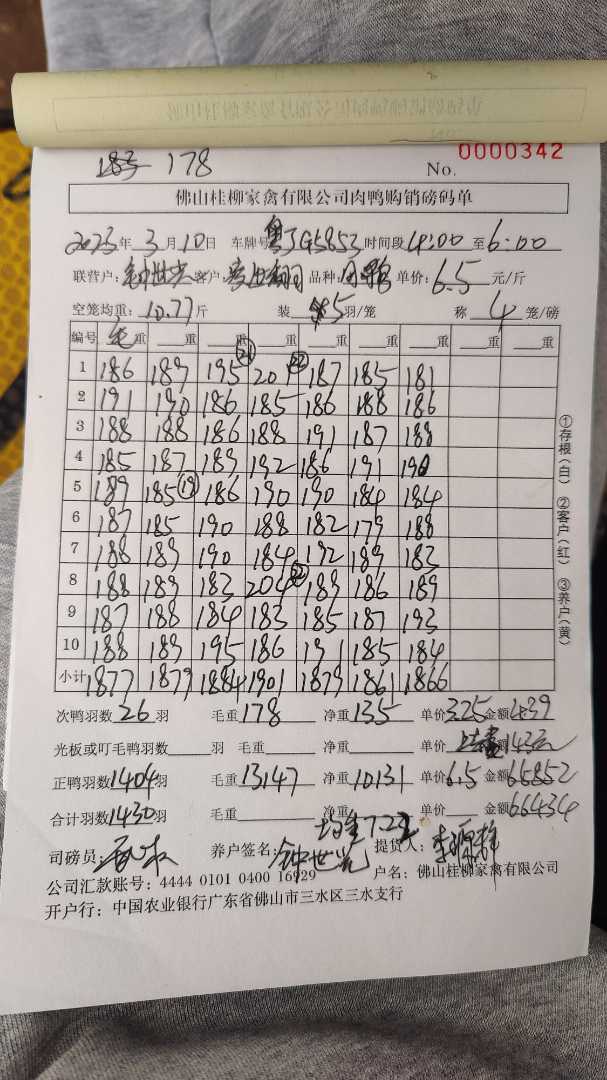 183 178
No. 0000342
佛山桂柳家禽有限公司肉鸭购销磅码单
2025年3月10日 车牌号 粤JG5853 时间段 4:00 至 6:00
联营户: 钟世光 客户: 品种: 单价: 6.5 元/斤
空笼均重: 10.77 斤 装 5 羽/笼 称 4 笼/磅
编号 毛重 重 重 重 重 重 重 重 重
1 186 189 195 (21) 201 (22) 187 185 181
2 191 190 186 185 186 188 186
3 188 188 186 188 191 187 188
4 185 187 189 192 186 191 190
5 189 185 (19) 186 190 190 184 184
6 187 185 190 188 182 179 188
7 188 189 190 184 192 189 183
8 188 189 183 204 (22) 189 186 189
9 187 188 184 183 185 187 193
10 188 189 195 186 191 185 184
小计 1877 1879 1884 1901 1879 1861 1866
①存根(白) ②客户(红) ③养户(黄)
次鸭羽数 26 羽 毛重 178 净重 135 单价 3.25 金额 439
光板或叮毛鸭羽数 羽 毛重 净重 143元
正鸭羽数 1404 羽 毛重 13147 净重 10131 单价 6.5 金额 65852
合计羽数 1430 羽 毛重 净重 单价 金额 66434
均重7.22
司磅员: 养户签名: 钟世光 提货人:
公司汇款账号: 4444 0101 0400 16929 户名: 佛山桂柳家禽有限公司
开户行: 中国农业银行广东省佛山市三水区三水支行